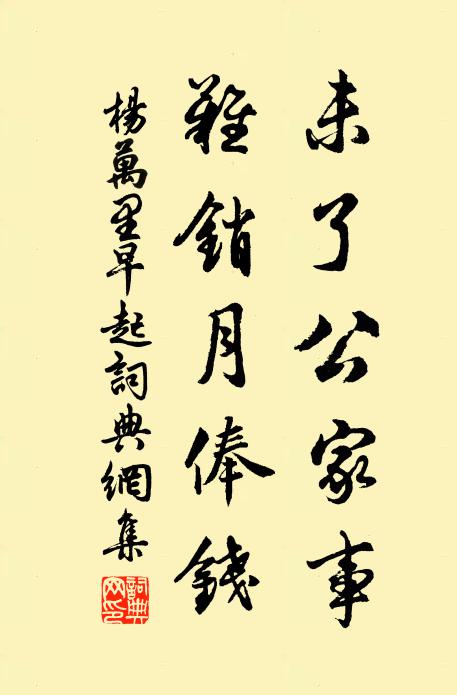 未了公家事
難銷月俸錢
楊萬里早起詞典網集
詞典網印